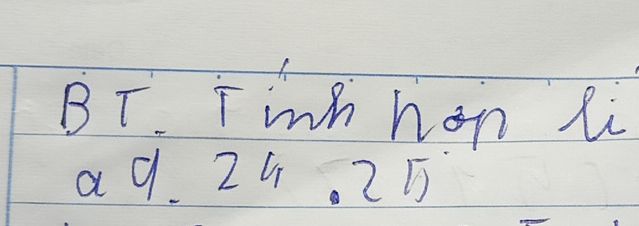 BT. Tính hợp lí
a 9. 24 .25